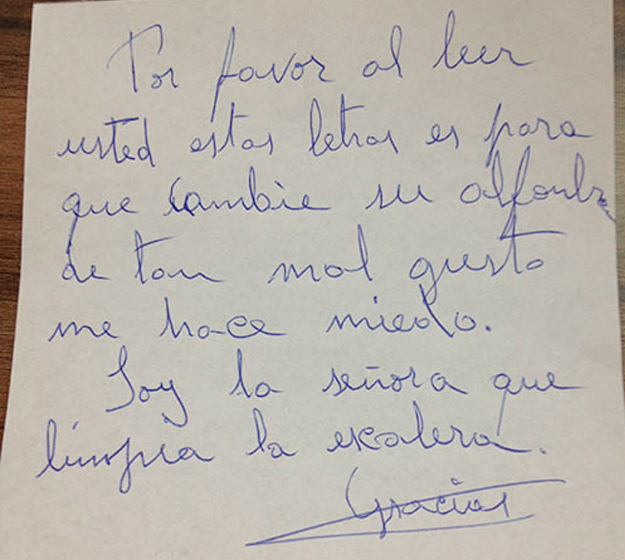 Por favor al leer
usted estas letras es para
que cambie su alfombra
de tan mal gusto
me hace miedo.
Soy la señora que
limpia la escalera.
Gracias